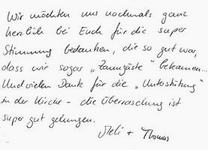 Wir möchten uns nochmals ganz
herzlich bei Euch für die super
Stimmung bedanken, die so gut war,
dass wir sogar "Zaungäste" bekamen.
Und vielen Dank für die "Unterstützung"
in der Kirche - die Überraschung ist
super gut gelungen.
Meli + Thomas